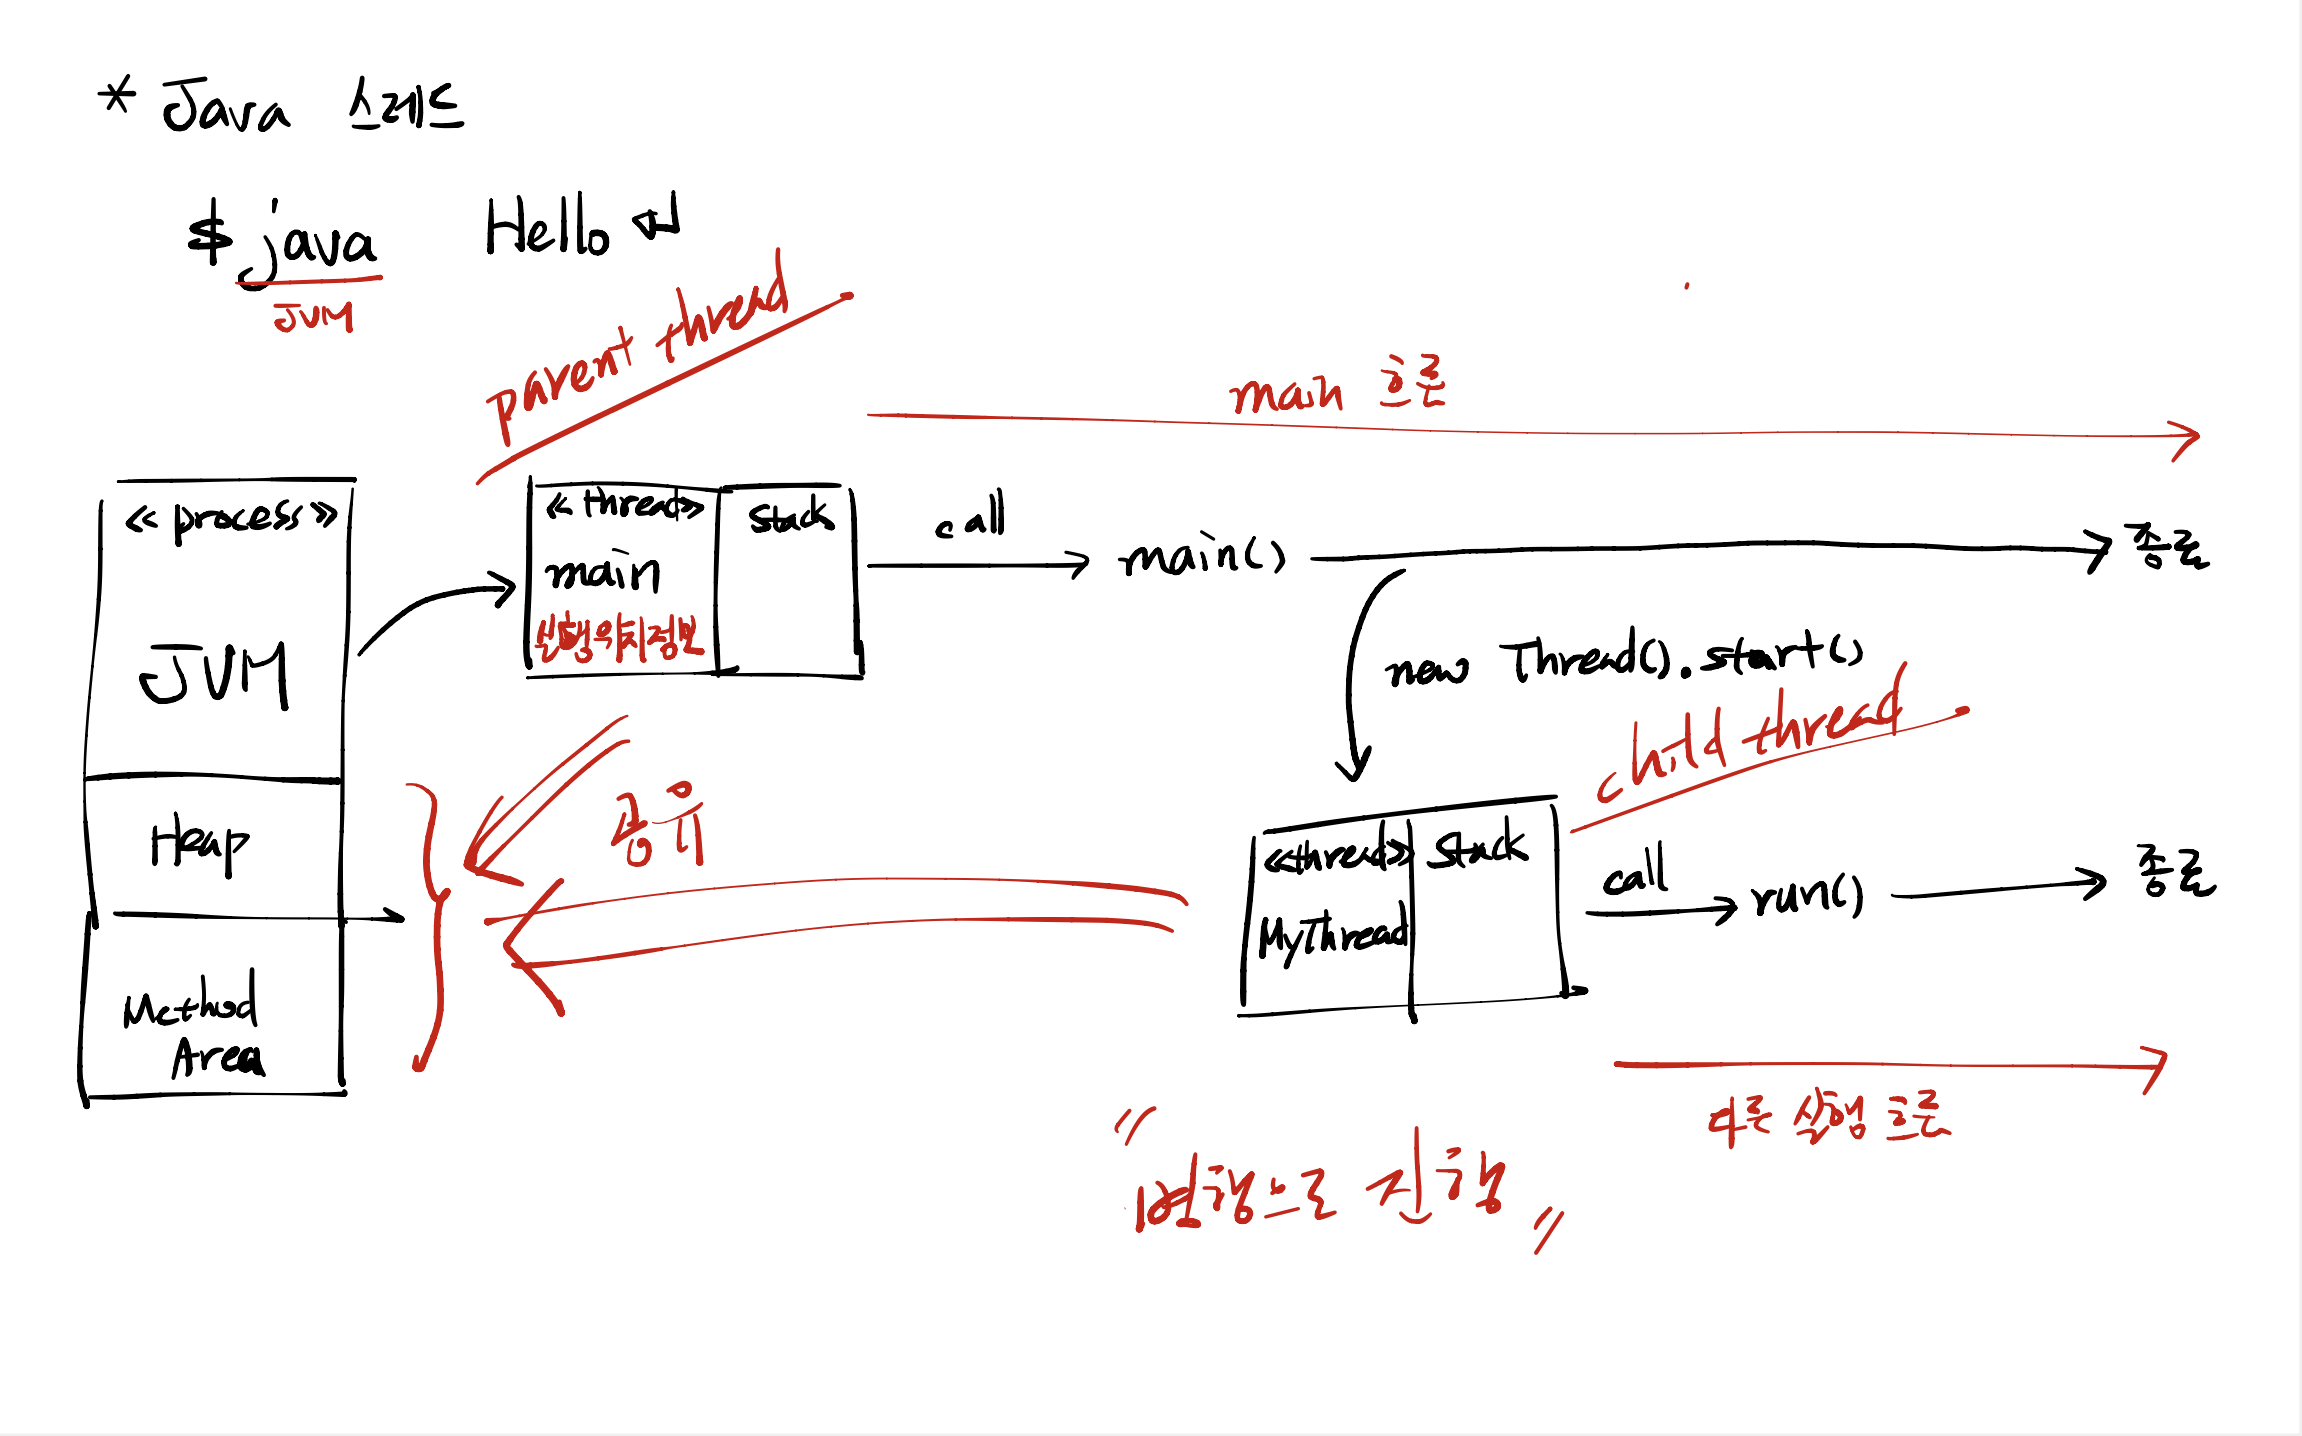 * Java 스레드
$ java Hello ↵
JVM
parent thread
main 흐름
<< process >>
JVM
Heap
Method
Area
<< thread >>
main
실행위치정보
Stack
call
main()
종료
new Thread().start()
child thread
공유
<<thread>>
MyThread
Stack
call
run()
종료
다른 실행 흐름
"병행으로 진행"